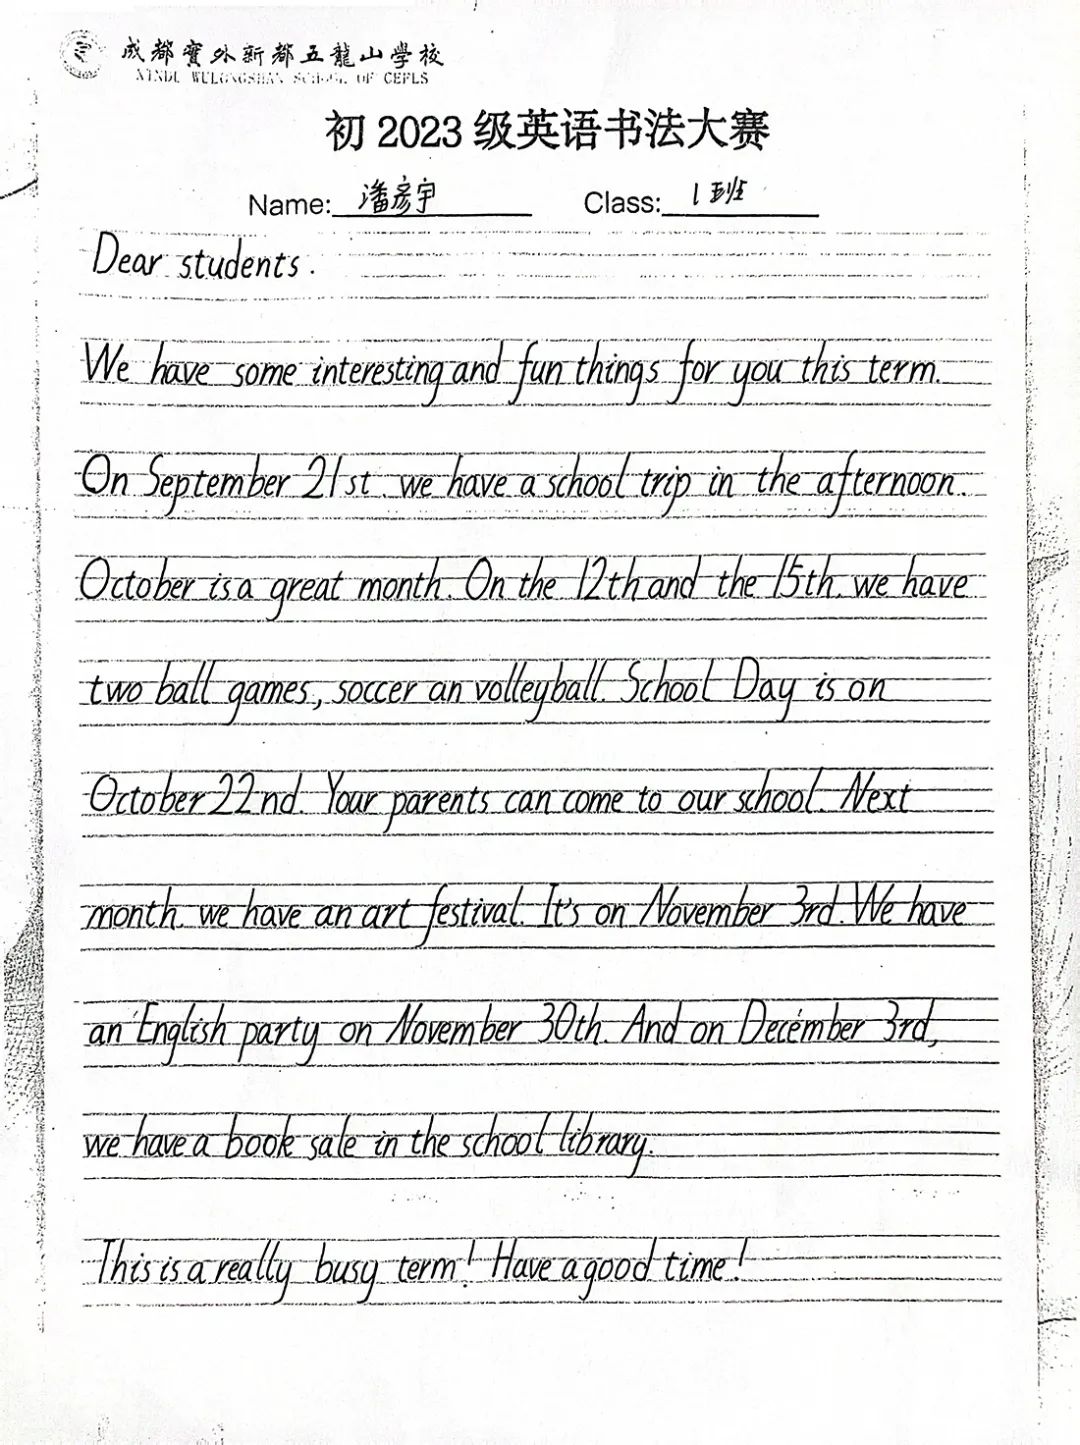 成都實外新都五龍山學校
XINDU WULONGSHAN SCHOOL OF CEFLS
初 2023 级英语书法大赛
Name: 潘彦宇 Class: 1班
Dear students.
We have some interesting and fun things for you this term.
On September 21st. we have a school trip in the afternoon.
October is a great month. On the 12th and the 15th. we have
two ball games, soccer an volleyball. School Day is on
October 22nd. Your parents can come to our school. Next
month. we have an art festival. It's on November 3rd. We have
an English party on November 30th. And on December 3rd,
we have a book sale in the school library.
This is a really busy term! Have a good time!